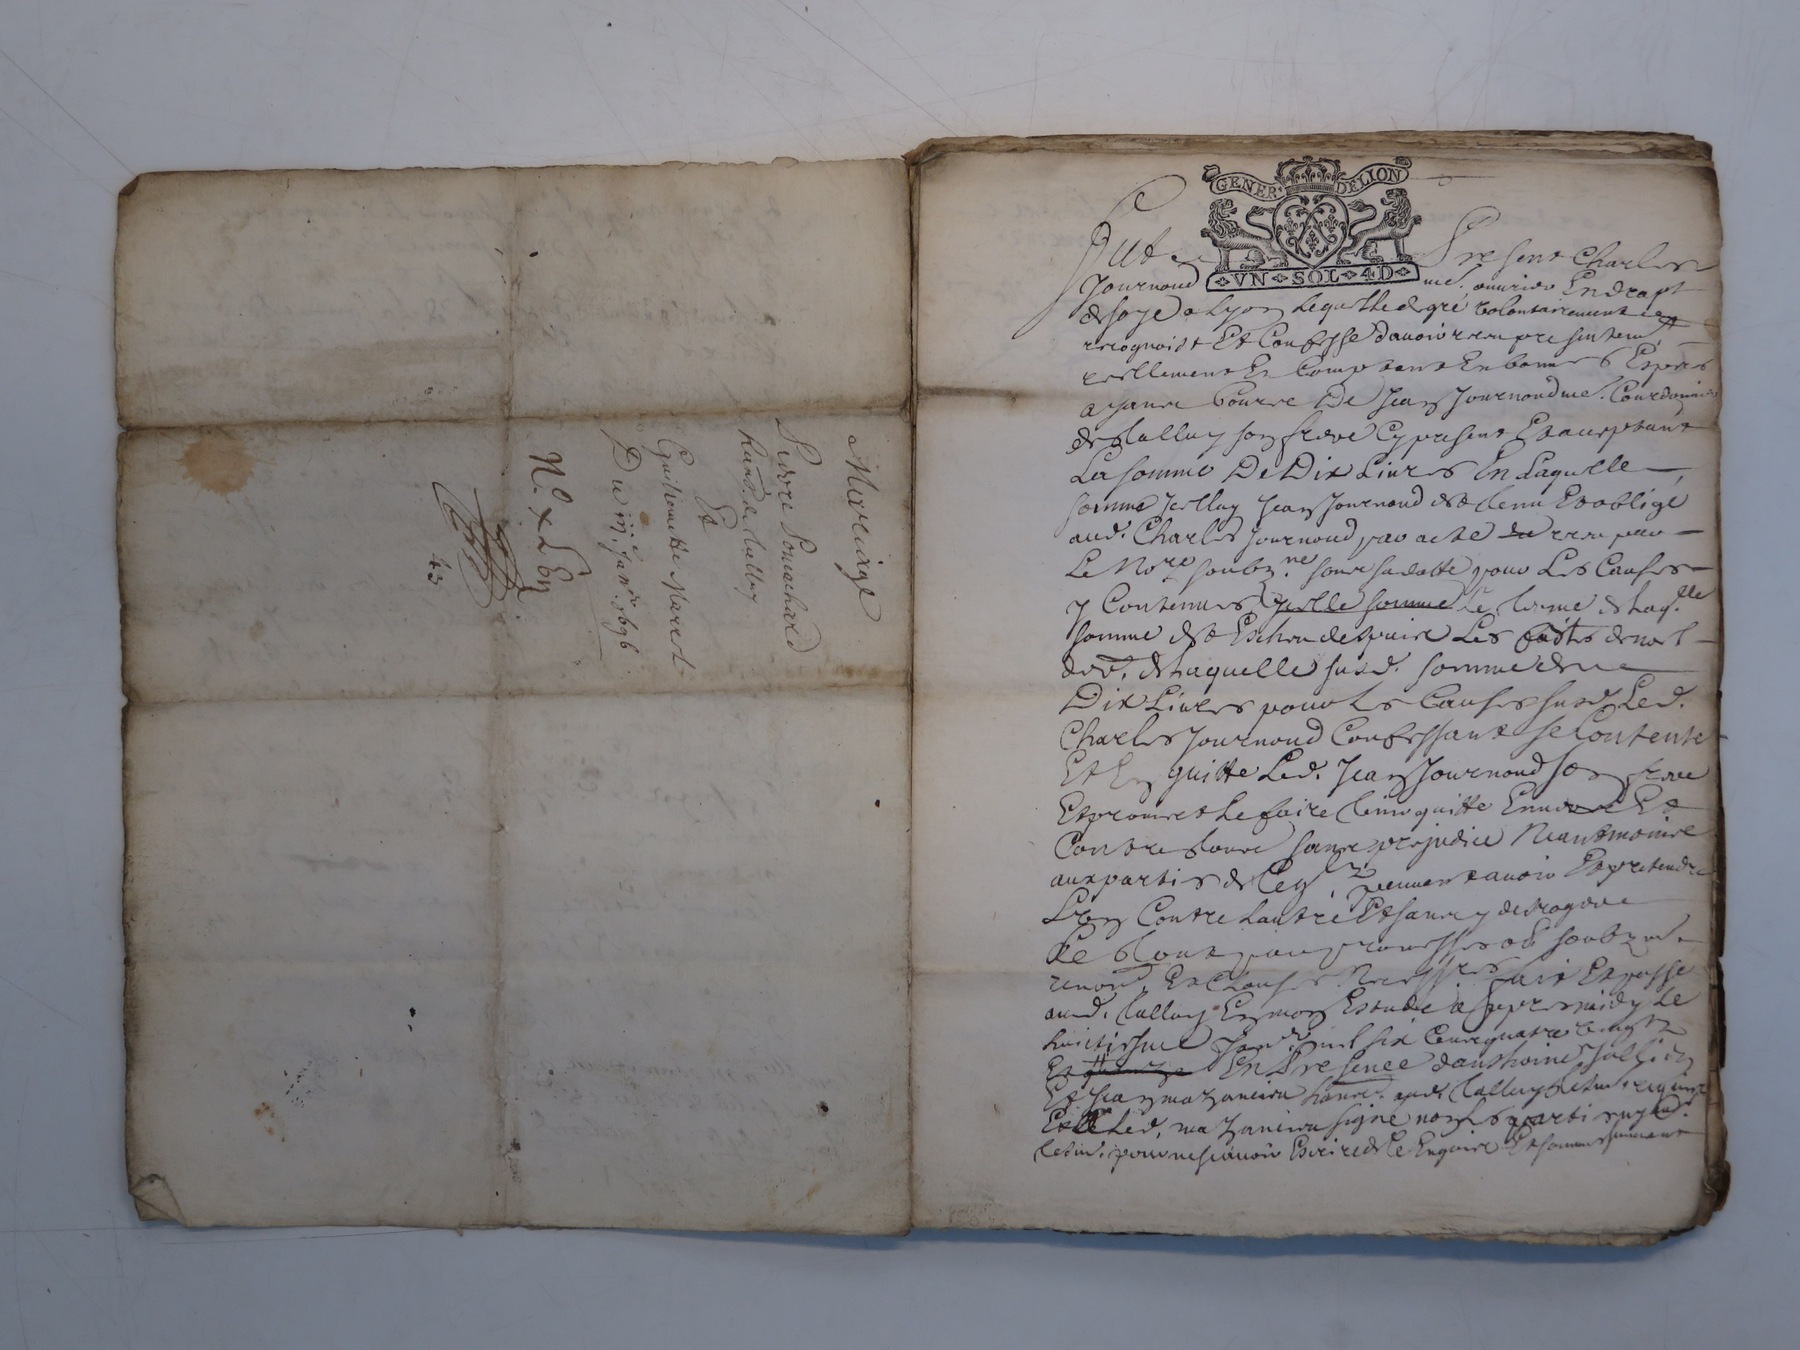 Mariage
Pierre Ponchard
habt. de Talluy
Et
Guillemette Maret
Du iij.e Janr. 1696
N.o x L Ey
43
GENER. DELION
VN SOL 4D
Fut Present Charles
Journoud me. ouurier En drapt
de soye a Lyon Lequel de gré volontairement
recognoist Et Confesse d'auoir receu presentemt.
reellement Et Comptant En bonnes Especes
ayant Cource De Jean Journoud me. Courdonnier
de Talluy son frere Cy present Et acceptant
La somme De Dix Liures En Laquelle
somme Jcelluy Jean Journoud est tenu Et obligé
aud. Charles Journoud par acte receu par
Le Nore. soubzne. sour sa datte pour Les Causes
y Contenues Jcelle somme Le terme de laqlle
somme est Escheu despuis Les festes de noel
der. de Laquelle susd. somme de
Dix Liures pour Les Causes susd. Led.
Charles Journoud Confessant se Contente
Et En quitte Led. Jean Journoud son frere
Et promet Le faire tenir quitte Enuers Et
Contre tous sans prejudice Neantmoins
aux parties de Ceq. peuuent auoir Et pretendre
L'un Contre Lautre Et sans y desroger
Le tout par promesses ob. soubzm.
renon. Et Clauses Necessres. fait Et passé
aud. Talluy En mon Estude apres midy Le
huictiesme Janr. mil six Cens quatre vingtz
Et En Presence d'anthoine Jullien
Et Jean mazancieu habt. aud. Talluy tesm. requis
Et Led. mazancieu signé non Les parties ny Led.
tesm. pour ne scauoir Escrire de Ce Enquis Et sommes suiuant